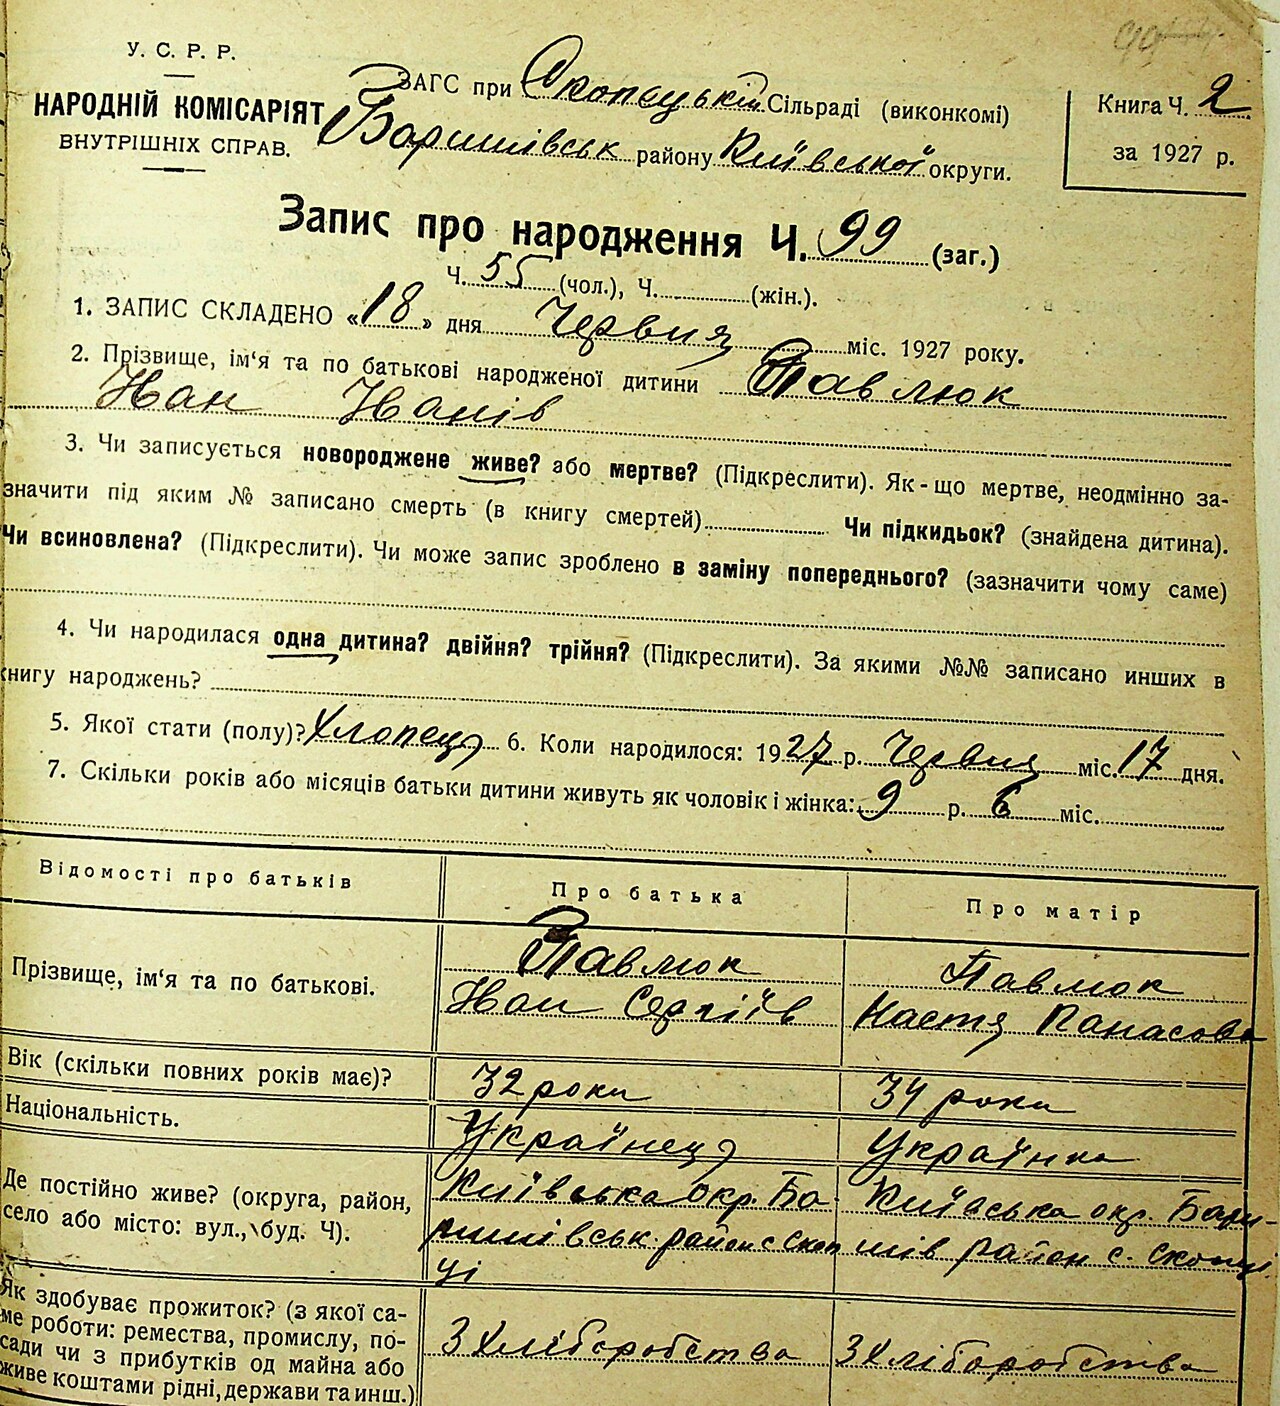 У. С. Р. Р.
НАРОДНІЙ КОМІСАРІЯТ
ВНУТРІШНІХ СПРАВ.
ЗАГС при Скопецькій Сільраді (виконкомі)
Баришівськ району Київської округи.
Книга Ч. 2
за 1927 р.
Запис про народження Ч. 99 (заг.)
Ч. 55 (чол.), Ч. (жін.).
1. ЗАПИС СКЛАДЕНО «18» дня Червця міс. 1927 року.
2. Прізвище, ім'я та по батькові народженої дитини Павлюк
Іван Іванів
3. Чи записується новороджене живе? або мертве? (Підкреслити). Як-що мертве, неодмінно за-
значити під яким № записано смерть (в книгу смертей) Чи підкидьок? (знайдена дитина).
Чи всиновлена? (Підкреслити). Чи може запис зроблено в заміну попереднього? (зазначити чому саме)
4. Чи народилася одна дитина? двійня? трійня? (Підкреслити). За якими №№ записано инших в
книгу народжень?
5. Якої стати (полу)? Хлопець 6. Коли народилося: 1927 р. Червця міс. 17 дня.
7. Скільки років або місяців батьки дитини живуть як чоловік і жінка: 9 р. 6 міс.
Відомості про батьків Про батька Про матір
Прізвище, ім'я та по батькові. Павлюк Іван Сергіїв Павлюк Настя Панасова
Вік (скільки повних років має)? 32 роки 34 роки
Національність. Українець Українка
Де постійно живе? (округа, район,
село або місто: вул., буд. Ч).
Київська окр. Ба-
ришівськ. район с Скоп
ці
Київська окр. Бари-
шів район с. Скопці
Як здобуває прожиток? (з якої са-
ме роботи: ремества, промислу, по-
сади чи з прибутків од майна або
живе коштами рідні, держави та инш.)
З Хліборобства З Хліборобства